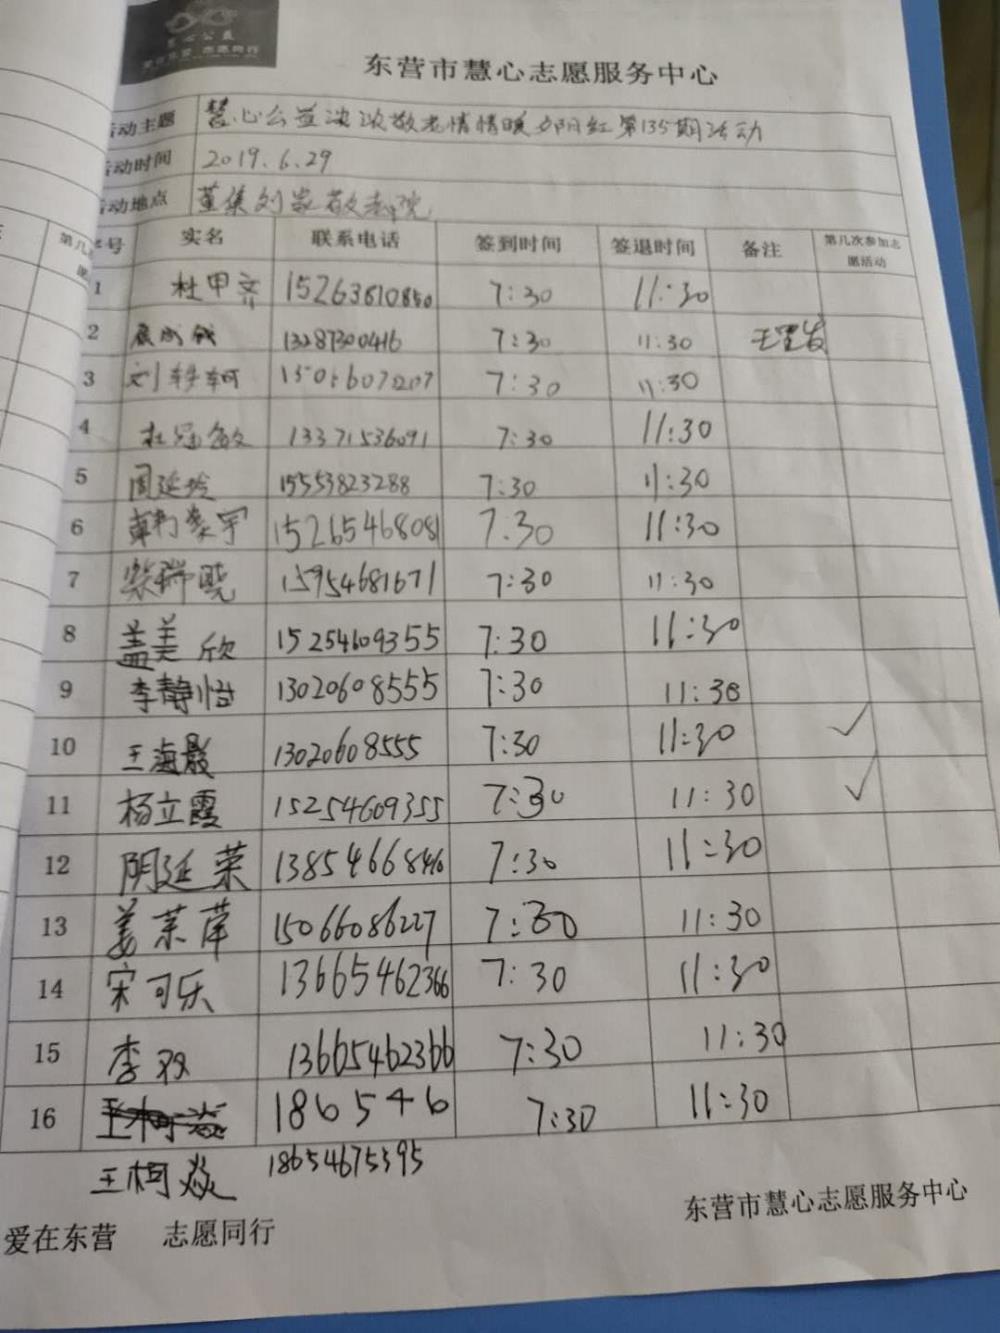 慧心公益
爱在东营 志愿同行
东营市慧心志愿服务中心
活动主题 慧心公益浓浓敬老情情暖夕阳红第135期活动
活动时间 2019.6.29
活动地点 董集刘家敬老院
第几
序号 实名 联系电话 签到时间 签退时间 备注 第几次参加志愿活动
1 杜甲齐 15263810850 7:30 11:30
2 成钱 13287300416 7:30 11:30 王里发
3 刘轶轲 7:30 11:30
4 杜冠敏 13371536091 7:30 11:30
5 周延玲 15553823288 7:30 11:30
6 15265468081 7:30 11:30
7 柴瑞晓 15954681671 7:30 11:30
8 盖美欣 15254609355 7:30 11:30
9 李静怡 13020608555 7:30 11:30
10 王海霞 13020608555 7:30 11:30 ✓
11 杨立霞 15254609355 7:30 11:30 ✓
12 阴延荣 13854668446 7:30 11:30
13 姜茉萍 15066086227 7:30 11:30
14 宋可乐 13665462366 7:30 11:30
15 李双 13665462366 7:30 11:30
16 王柯焱 186546 7:30 11:30
王柯焱 18654675395
爱在东营 志愿同行 东营市慧心志愿服务中心